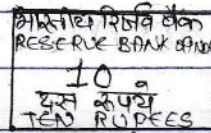 भारतीय रिज़र्व बैंक
RESERVE BANK
10
दस रूपये
TEN RUPEES